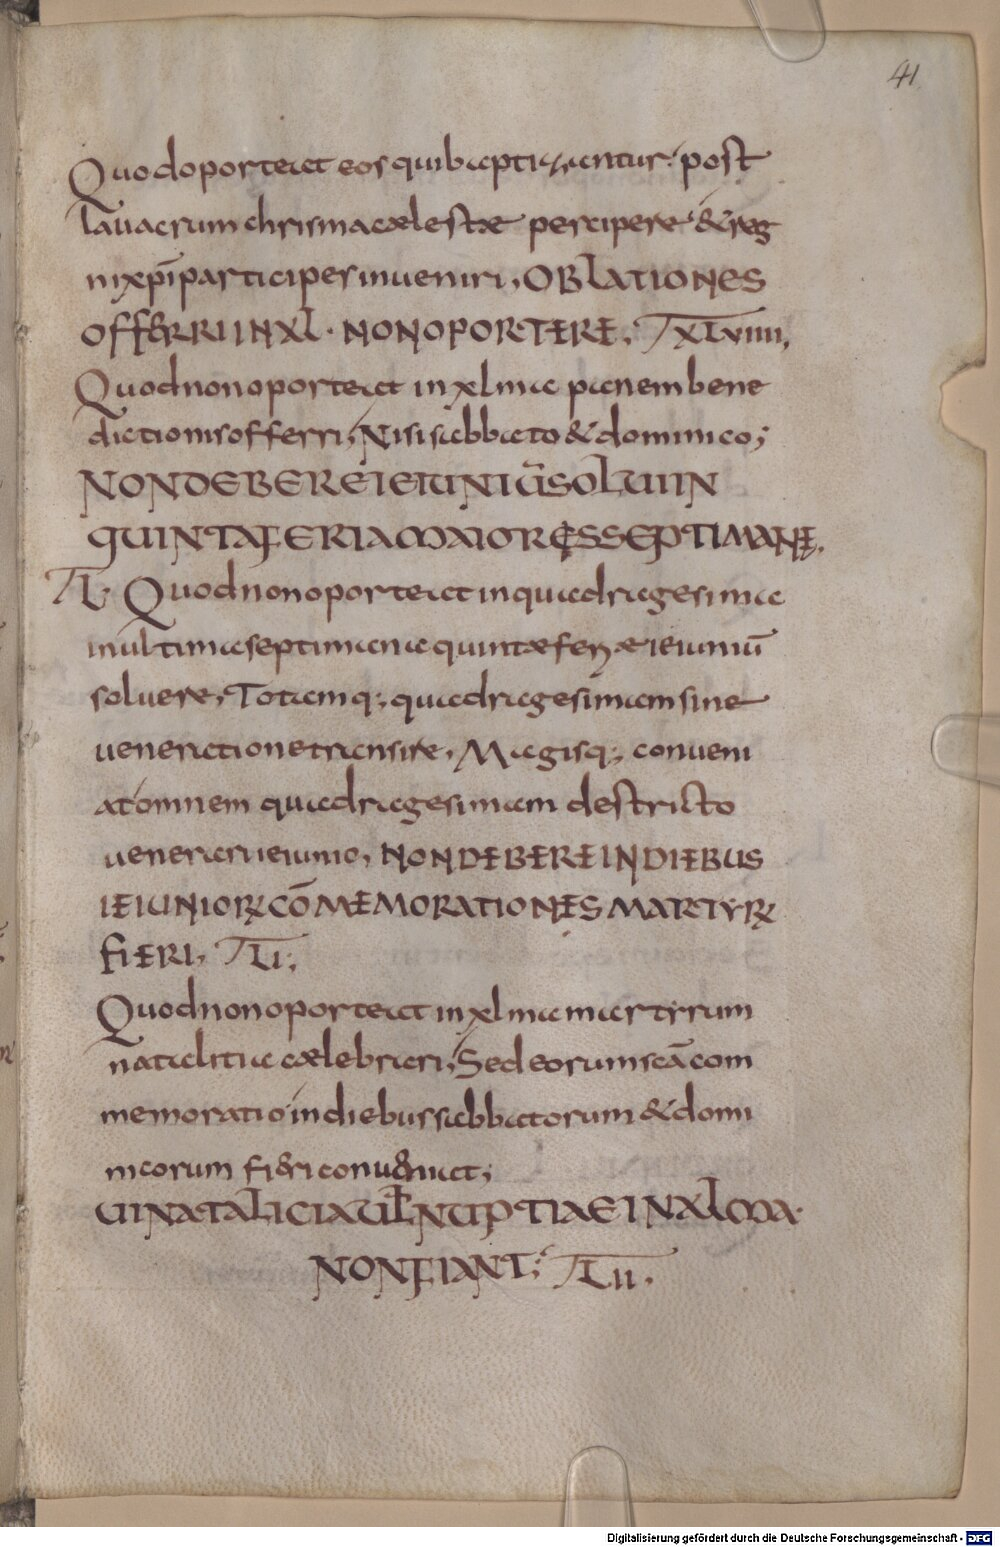 41
Quod oportet eos qui baptizantur. post
lauacrum chrisma cælestæ percipere & reg
ni xp̄i participes inueniri, OBLATIONES
OFFERRI IN XL. NON OPORTERE, T̄ XLVIIII,
Quod non oporteat in xlma panem bene
dictionis offerri, Nisi sabbato & dominico;
NON DEBERE IEIUNIŪ SOLUI IN
QUINTA FERIA MAIORES SEPTIMANE,
T̄L. Quod non oporteat in quadragesima
in ultima septimana quintæ feriæ ieiuniū
soluere, Totamq; quadragesimam sine
ueneratione transire, Magisq; conueni
at omnem quadragesimam destricto
uenerari ieiunio, NON DEBERE IN DIEBUS
IEIUNIORꝜ CŌMEMORATIONES MARTYRꝜ
FIERI, T̄LI;
Quod non oporteat in xlma martyrum
natalitia cælebrari, Sed eorum scā com
memoratio in diebus sabbatorum & domi
nicorum fieri conueniat;
UI NATALICIA UL̄ NUPTIAE IN XLMA
NON FIANT; T̄LII.
Digitalisierung gefördert durch die Deutsche Forschungsgemeinschaft - DFG